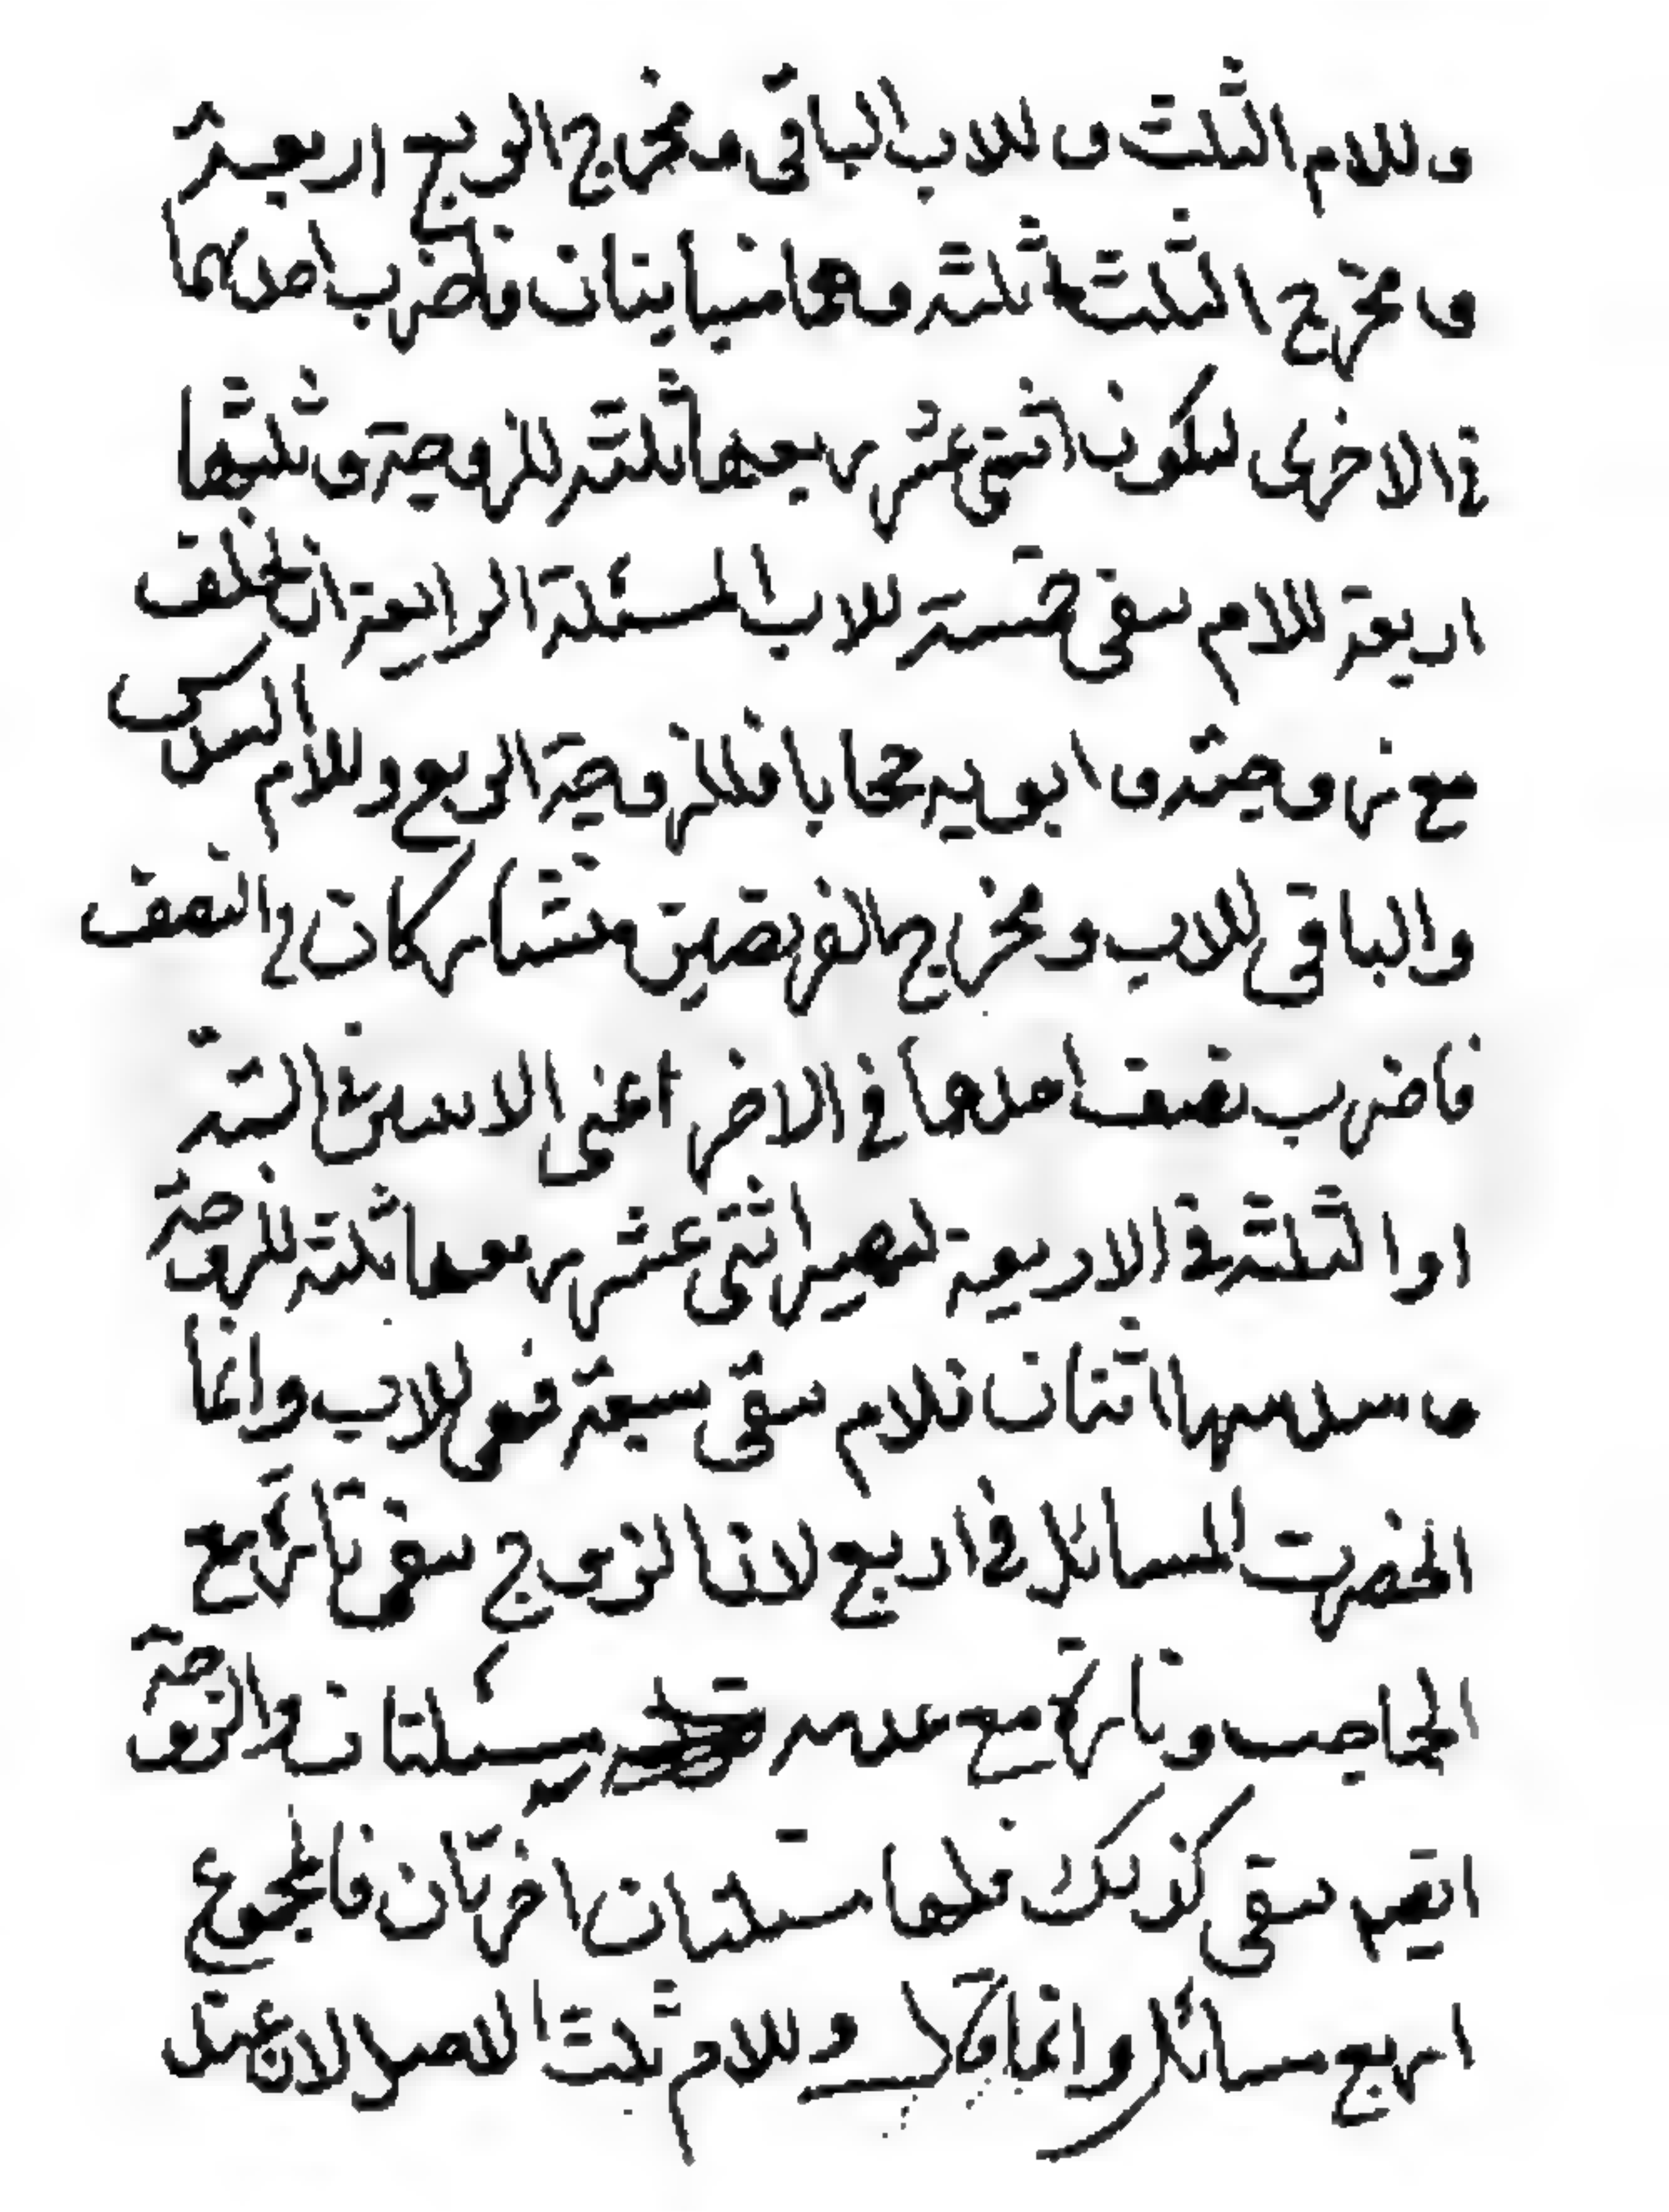 وللام الثلث وللاب الباقى ومخرج الربع اربعة
ومخرج الثلث ثلثة وهما متباينان فاضرب احدهما
فى الاخرى ليكون اثنى عشر ربعها ثلثة للزوجة وثلثها
اربعة للام بقى خمسة للاب المسئلة الرابعة ان يخلف
مع زوجته وابويه حجابا فللزوجة الربع وللام السدس
والباقى للاب ومخرج الفريضتين متشاركان فى النصف
فاضرب نصف احدهما فى الاخر اعنى الاثنين فى الستة
او الثلثة فى الاربعة ليصير اثنى عشر ربعها ثلثة للزوجة
وسدسها اثنان فللام بقى سبعة فهى للاب وانما
انحصرت المسائل فى اربع لان الزوج يفرض تارة مع
الحاجب وتارة مع عدمه مسئلتان والزوجة
ايضا بقى كذلك فلها مسئلتان اخرتان فالمجموع
اربع مسائل وانما قال وللام ثلث الاصل لان عند